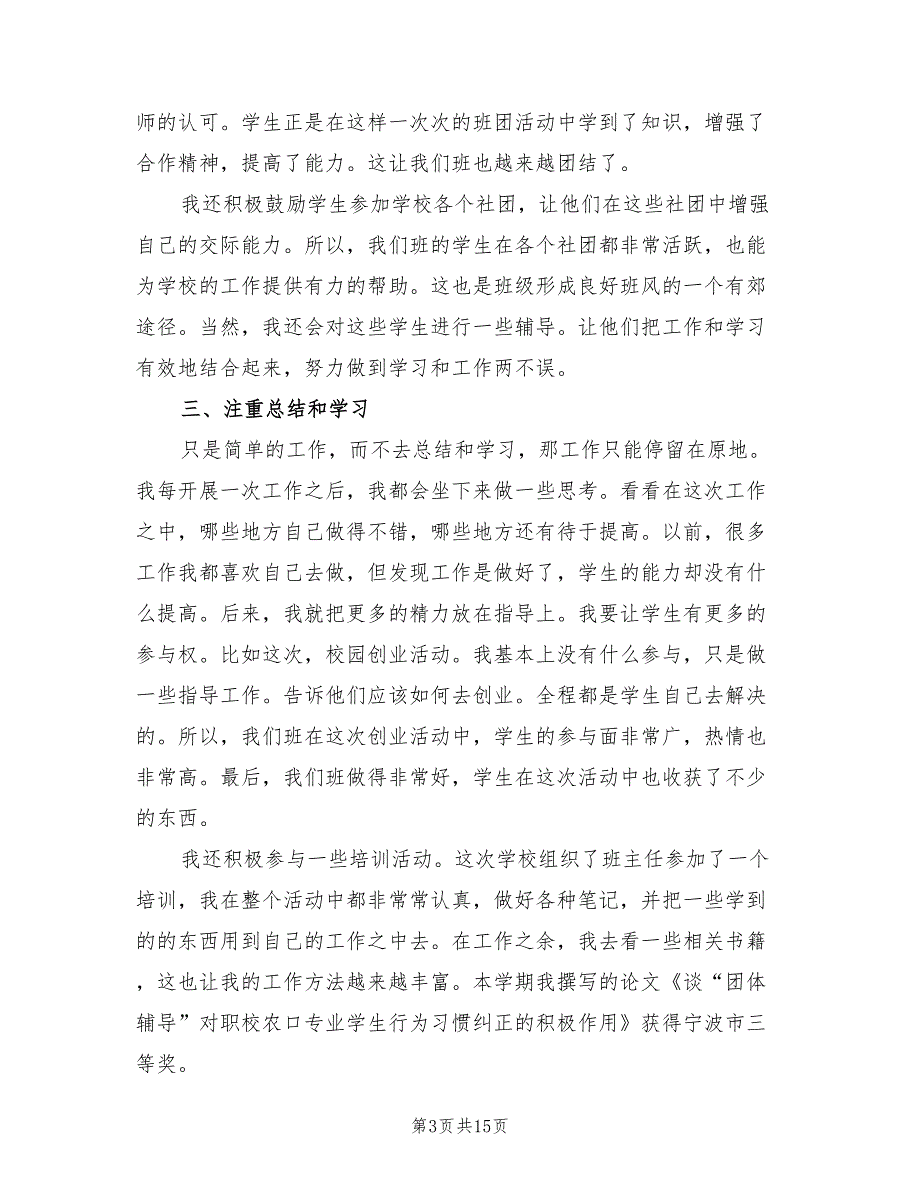 师的认可。学生正是在这样一次次的班团活动中学到了知识，增强了
合作精神，提高了能力。这让我们班也越来越团结了。
我还积极鼓励学生参加学校各个社团，让他们在这些社团中增强
自己的交际能力。所以，我们班的学生在各个社团都非常活跃，也能
为学校的工作提供有力的帮助。这也是班级形成良好班风的一个有郊
途径。当然，我还会对这些学生进行一些辅导。让他们把工作和学习
有效地结合起来，努力做到学习和工作两不误。
三、注重总结和学习
只是简单的工作，而不去总结和学习，那工作只能停留在原地。
我每开展一次工作之后，我都会坐下来做一些思考。看看在这次工作
之中，哪些地方自己做得不错，哪些地方还有待于提高。以前，很多
工作我都喜欢自己去做，但发现工作是做好了，学生的能力却没有什
么提高。后来，我就把更多的精力放在指导上。我要让学生有更多的
参与权。比如这次，校园创业活动。我基本上没有什么参与，只是做
一些指导工作。告诉他们应该如何去创业。全程都是学生自己去解决
的。所以，我们班在这次创业活动中，学生的参与面非常广，热情也
非常高。最后，我们班做得非常好，学生在这次活动中也收获了不少
的东西。
我还积极参与一些培训活动。这次学校组织了班主任参加了一个
培训，我在整个活动中都非常常认真，做好各种笔记，并把一些学到
的的东西用到自己的工作之中去。在工作之余，我去看一些相关书籍
，这也让我的工作方法越来越丰富。本学期我撰写的论文《谈“团体
辅导”对职校农口专业学生行为习惯纠正的积极作用》获得宁波市三
等奖。
第3页共15页